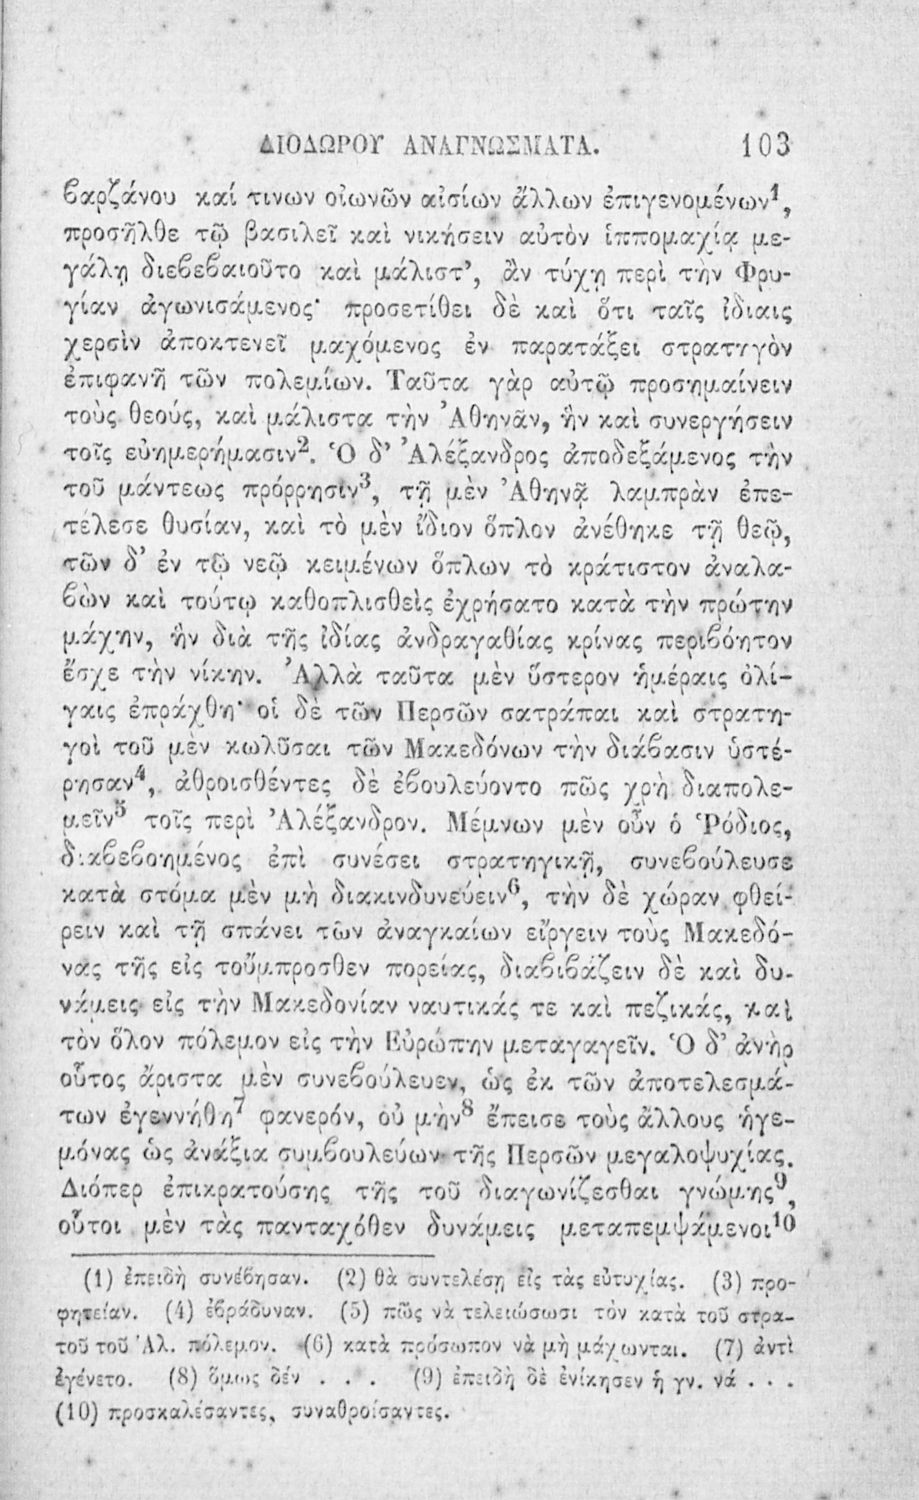 ΔΙΟΔΩΡΟΥ ΑΝΑΓΝΩΣΜΑΤΑ. 103
ϐαρζάνου καί τινων οἰωνῶν αἰσίων ἄλλων ἐπιγενομένων¹,
προσῆλθε τῷ βασιλεῖ καὶ νικήσειν αὐτὸν ἱππομαχίᾳ με-
γάλῃ διεϐεϐαιοῦτο καὶ μάλιστ’, ἂν τύχῃ περὶ τὴν Φρυ-
γίαν ἀγωνισάμενος· προσετίθει δὲ καὶ ὅτι ταῖς ἰδίαις
χερσὶν ἀποκτενεῖ μαχόμενος ἐν παρατάξει στρατηγὸν
ἐπιφανῆ τῶν πολεμίων. Ταῦτα γὰρ αὐτῷ προσημαίνειν
τοὺς θεούς, καὶ μάλιστα τὴν Ἀθηνᾶν, ἣν καὶ συνεργήσειν
τοῖς εὐημερήμασιν². Ὁ δ’ Ἀλέξανδρος ἀποδεξάμενος τὴν
τοῦ μάντεως πρόρρησιν³, τῇ μὲν Ἀθηνᾷ λαμπρὰν ἐπε-
τέλεσε θυσίαν, καὶ τὸ μὲν ἴδιον ὅπλον ἀνέθηκε τῇ θεῷ,
τῶν δ’ ἐν τῷ νεῷ κειμένων ὅπλων τὸ κράτιστον ἀναλα-
ϐὼν καὶ τούτῳ καθοπλισθεὶς ἐχρήσατο κατὰ τὴν πρώτην
μάχην, ἣν διὰ τῆς ἰδίας ἀνδραγαθίας κρίνας περιϐόητον
ἔσχε τὴν νίκην. Ἀλλὰ ταῦτα μὲν ὕστερον ἡμέραις ὀλί-
γαις ἐπράχθη· οἱ δὲ τῶν Περσῶν σατράπαι καὶ στρατη-
γοὶ τοῦ μὲν κωλῦσαι τῶν Μακεδόνων τὴν διάϐασιν ὑστέ-
ρησαν⁴, ἀθροισθέντες δὲ ἐϐουλεύοντο πῶς χρὴ διαπολε-
μεῖν⁵ τοῖς περὶ Ἀλέξανδρον. Μέμνων μὲν οὖν ὁ Ῥόδιος,
διαϐεϐοημένος ἐπὶ συνέσει στρατηγικῇ, συνεϐούλευσε
κατὰ στόμα μὲν μὴ διακινδυνεύειν⁶, τὴν δὲ χώραν φθεί-
ρειν καὶ τῇ σπάνει τῶν ἀναγκαίων εἴργειν τοὺς Μακεδό-
νας τῆς εἰς τοὔμπροσθεν πορείας, διαϐιϐάζειν δὲ καὶ δυ-
νάμεις εἰς τὴν Μακεδονίαν ναυτικάς τε καὶ πεζικάς, καὶ
τὸν ὅλον πόλεμον εἰς τὴν Εὐρώπην μεταγαγεῖν. Ὁ δ’ ἀνὴρ
οὗτος ἄριστα μὲν συνεϐούλευεν, ὡς ἐκ τῶν ἀποτελεσμά-
των ἐγεννήθη⁷ φανερόν, οὐ μὴν⁸ ἔπεισε τοὺς ἄλλους ἡγε-
μόνας ὡς ἀνάξια συμϐουλεύων τῆς Περσῶν μεγαλοψυχίας.
Διόπερ ἐπικρατούσης τῆς τοῦ διαγωνίζεσθαι γνώμης⁹,
οὗτοι μὲν τὰς πανταχόθεν δυνάμεις μεταπεμψάμενοι¹⁰
(1) ἐπειδὴ συνέϐησαν. (2) θὰ συντελέσῃ εἰς τὰς εὐτυχίας. (3) προ-
φητείαν. (4) ἐϐράδυναν. (5) πῶς νὰ τελειώσωσι τὸν κατὰ τοῦ στρα-
τοῦ τοῦ Ἀλ. πόλεμον. (6) κατὰ πρόσωπον νὰ μὴ μάχωνται. (7) ἀντὶ
ἐγένετο. (8) ὅμως δέν . . . (9) ἐπειδὴ δὲ ἐνίκησεν ἡ γν. νά . . .
(10) προσκαλέσαντες, συναθροίσαντες.